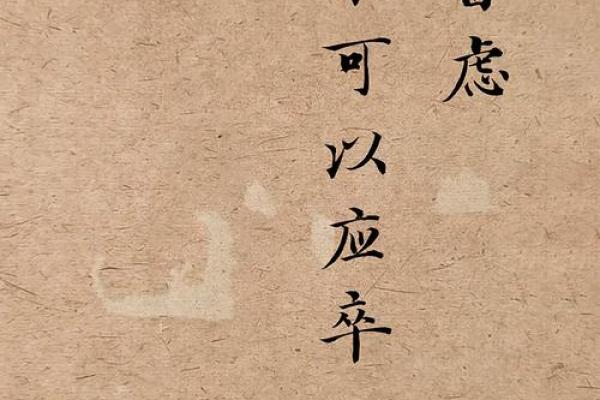 虑
可以应卒